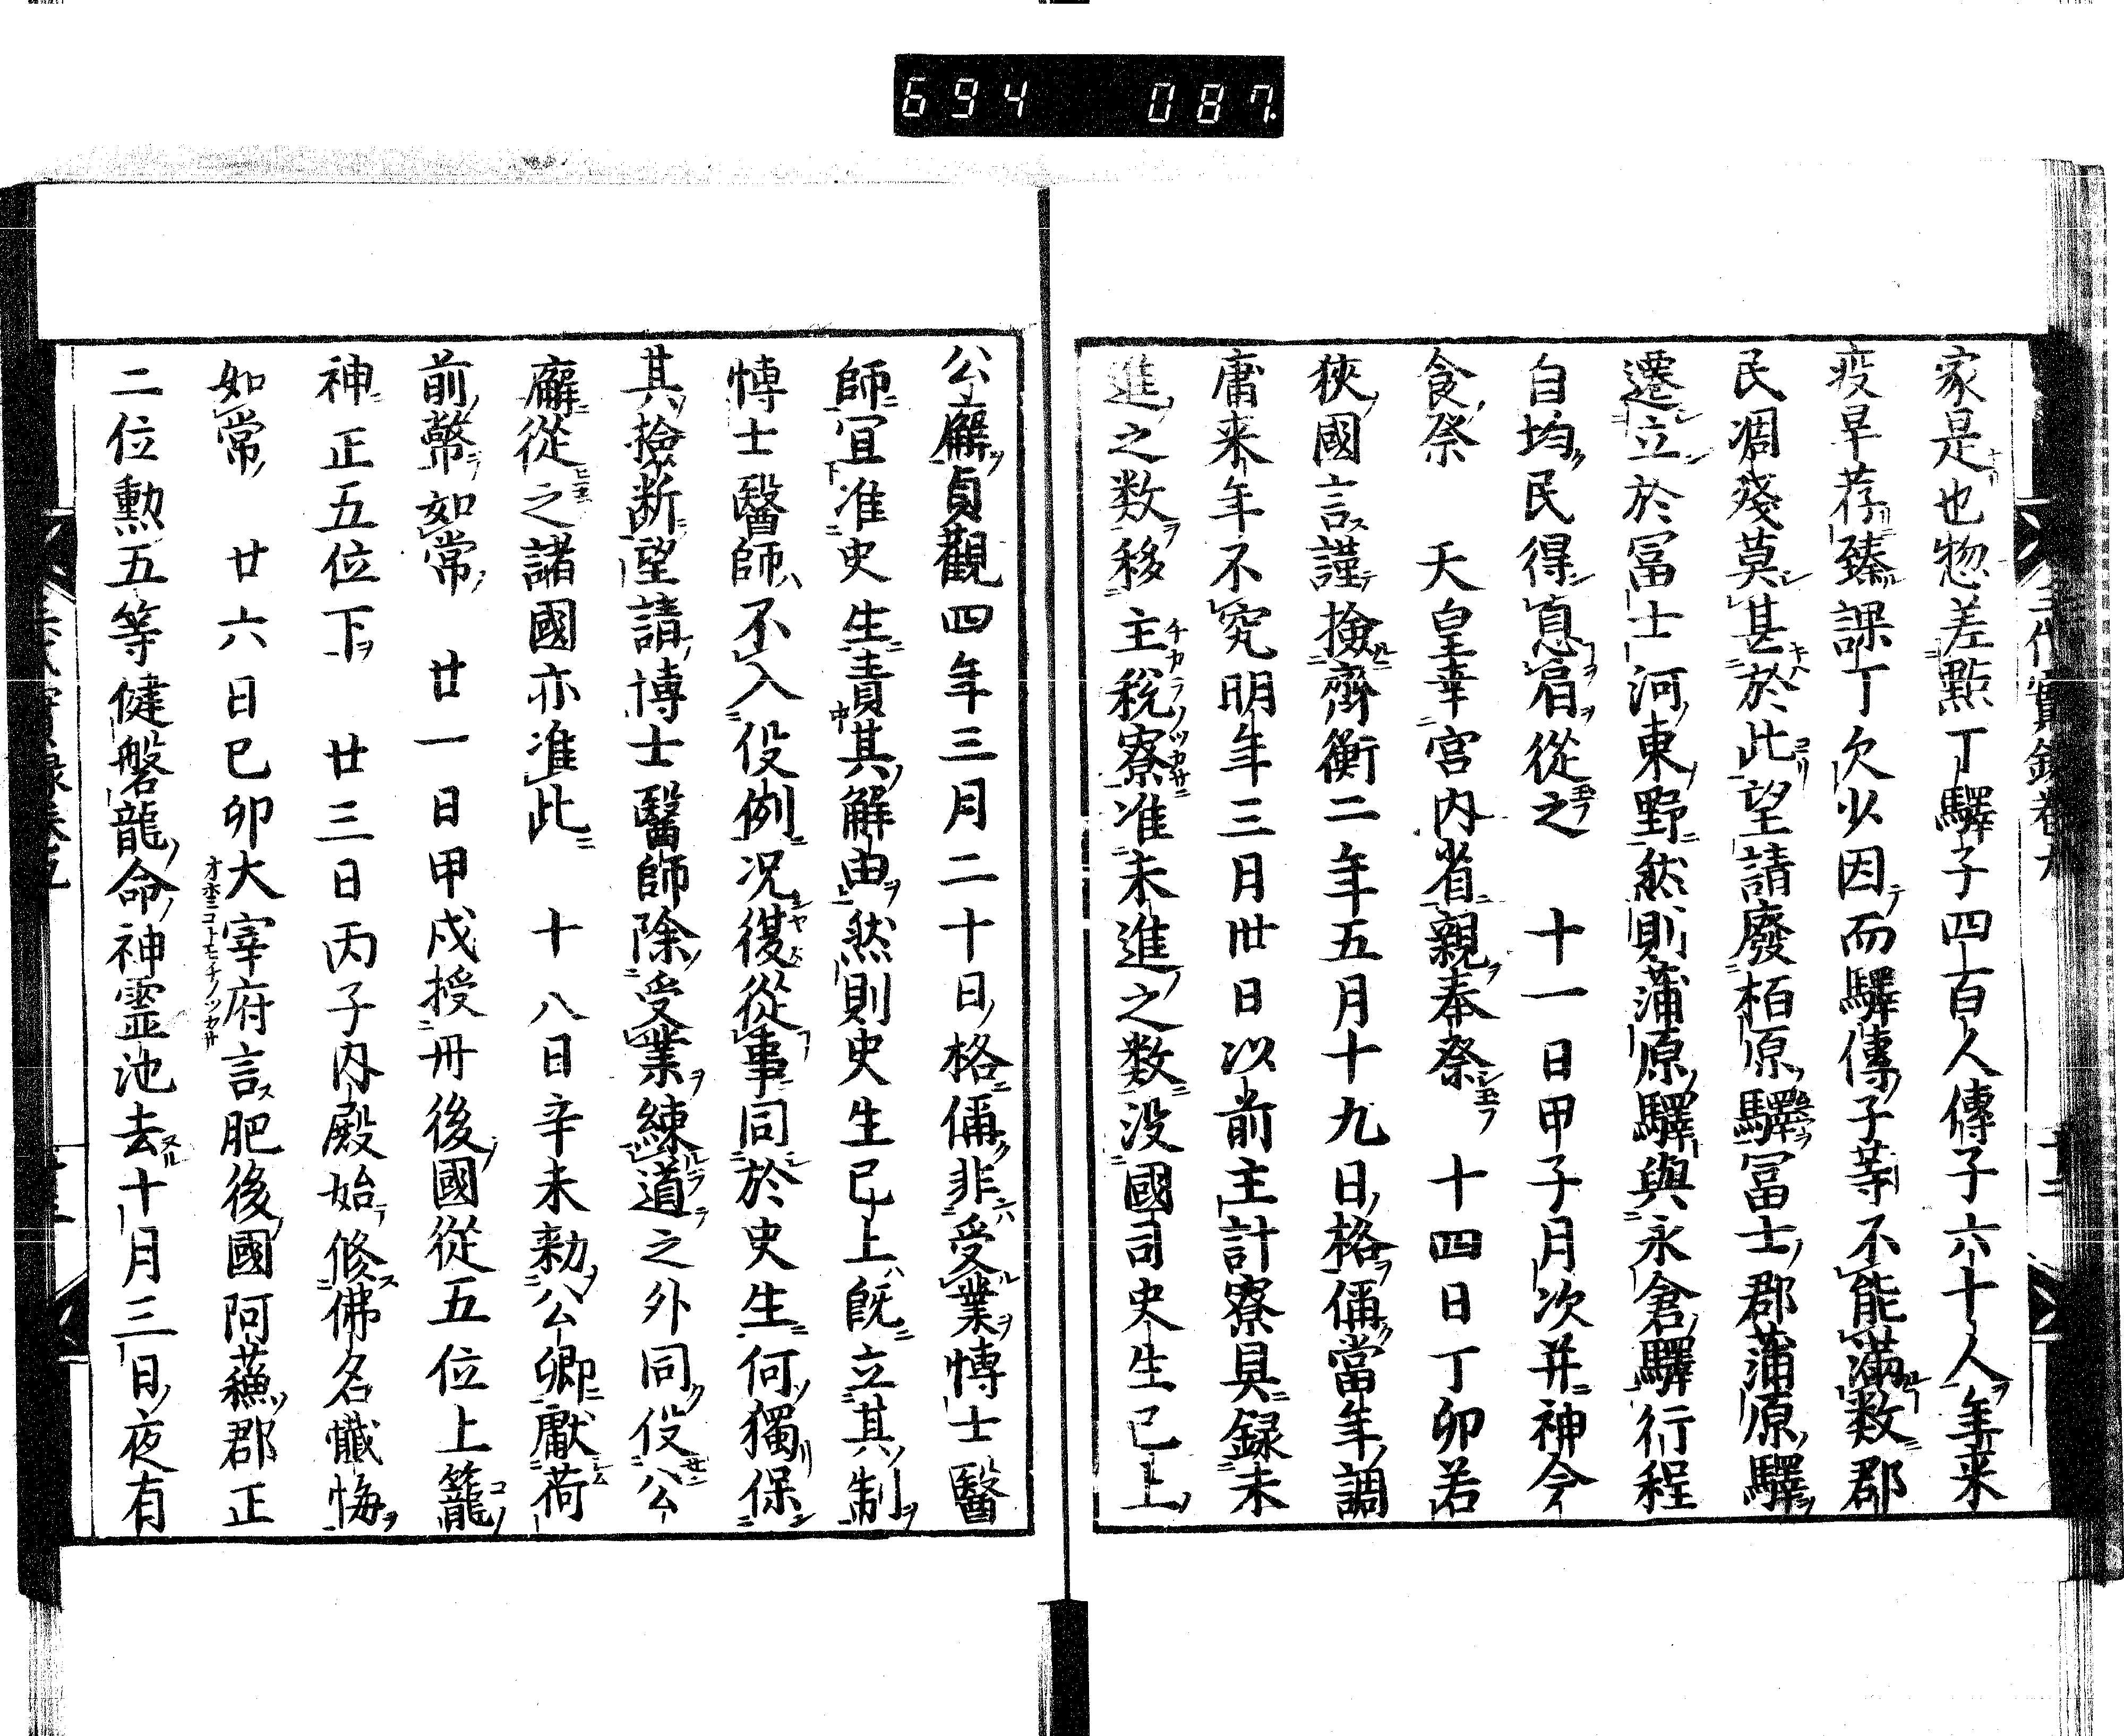 694 087.
家是也惣差點丁驛子四百人傳子六十人年来
疫旱荐臻課丁欠少因而驛傳子等不能滿数郡
民凋殘莫甚於此望請廢柏原驛冨士郡蒲原驛
遷立於冨士河東野然則蒲原驛與永倉驛行程
自均民得息肩從之 十一日甲子月次并神今
食祭 天皇幸宮内省親奉祭 十四日丁卯若
狹國言謹撿齊衡二年五月十九日格偁當年調
庸来年不究明年三月卅日以前主計寮具録未
進之数移主稅寮准未進之数没國司史生已上
公廨貞觀四年三月二十日格偁非受業愽士醫
師宜准史生責其解由然則史生已上旣立其制
愽士醫師不入役例况復從事同於史生何獨保
其撿断望請博士醫師除受業練道之外同役公
廨從之諸國亦准此 十八日辛未勑公卿獻荷
前幣如常 廿一日甲戌授丹後國從五位上籠
神正五位下 廿三日丙子内殿始修佛名懺悔
如常 廿六日已卯大宰府言肥後國阿蘓郡正
二位勲五等健磐龍命神靈池去十月三日夜有